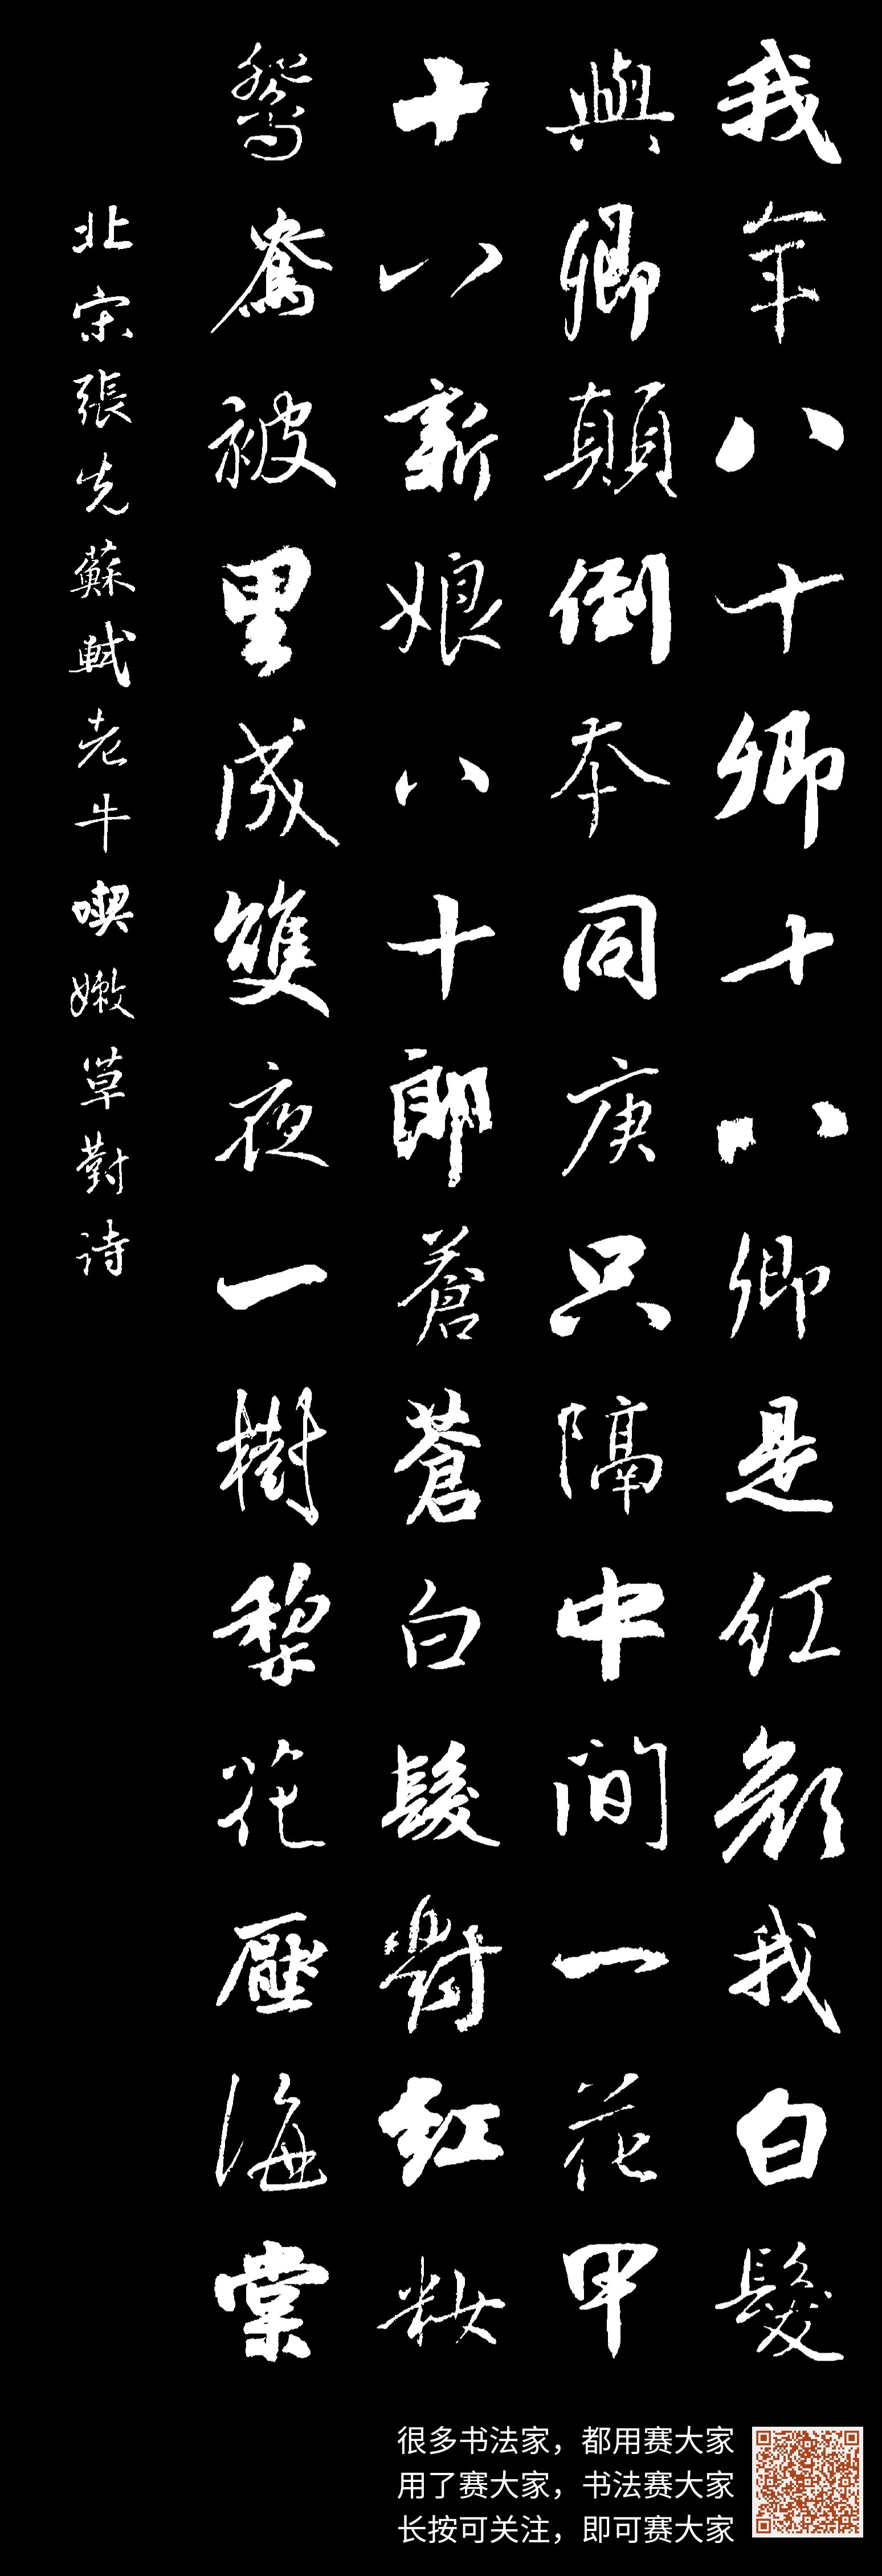 我年八十卿十八卿是红颜我白髮
與卿顛倒本同庚只隔中间一花甲
十八新娘八十郎蒼蒼白髮對红妝
鸳鴦被里成雙夜一樹黎花壓海棠
北宋張先蘇軾老牛喫嫩草對诗
很多书法家，都用赛大家
用了赛大家，书法赛大家
长按可关注，即可赛大家